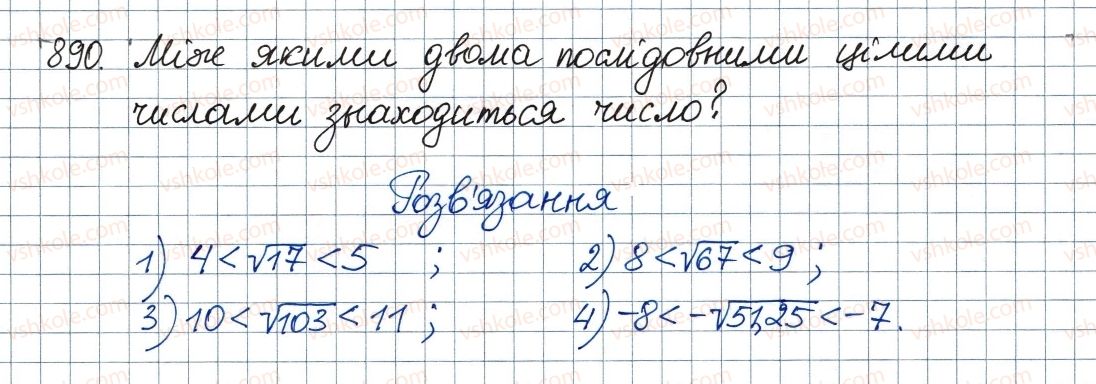 890. Між якими двома послідовними цілими
числами знаходиться число?
Розв'язання
1) 4 < √17 < 5 ; 2) 8 < √67 < 9 ;
3) 10 < √103 < 11 ; 4) -8 < -√51,25 < -7.